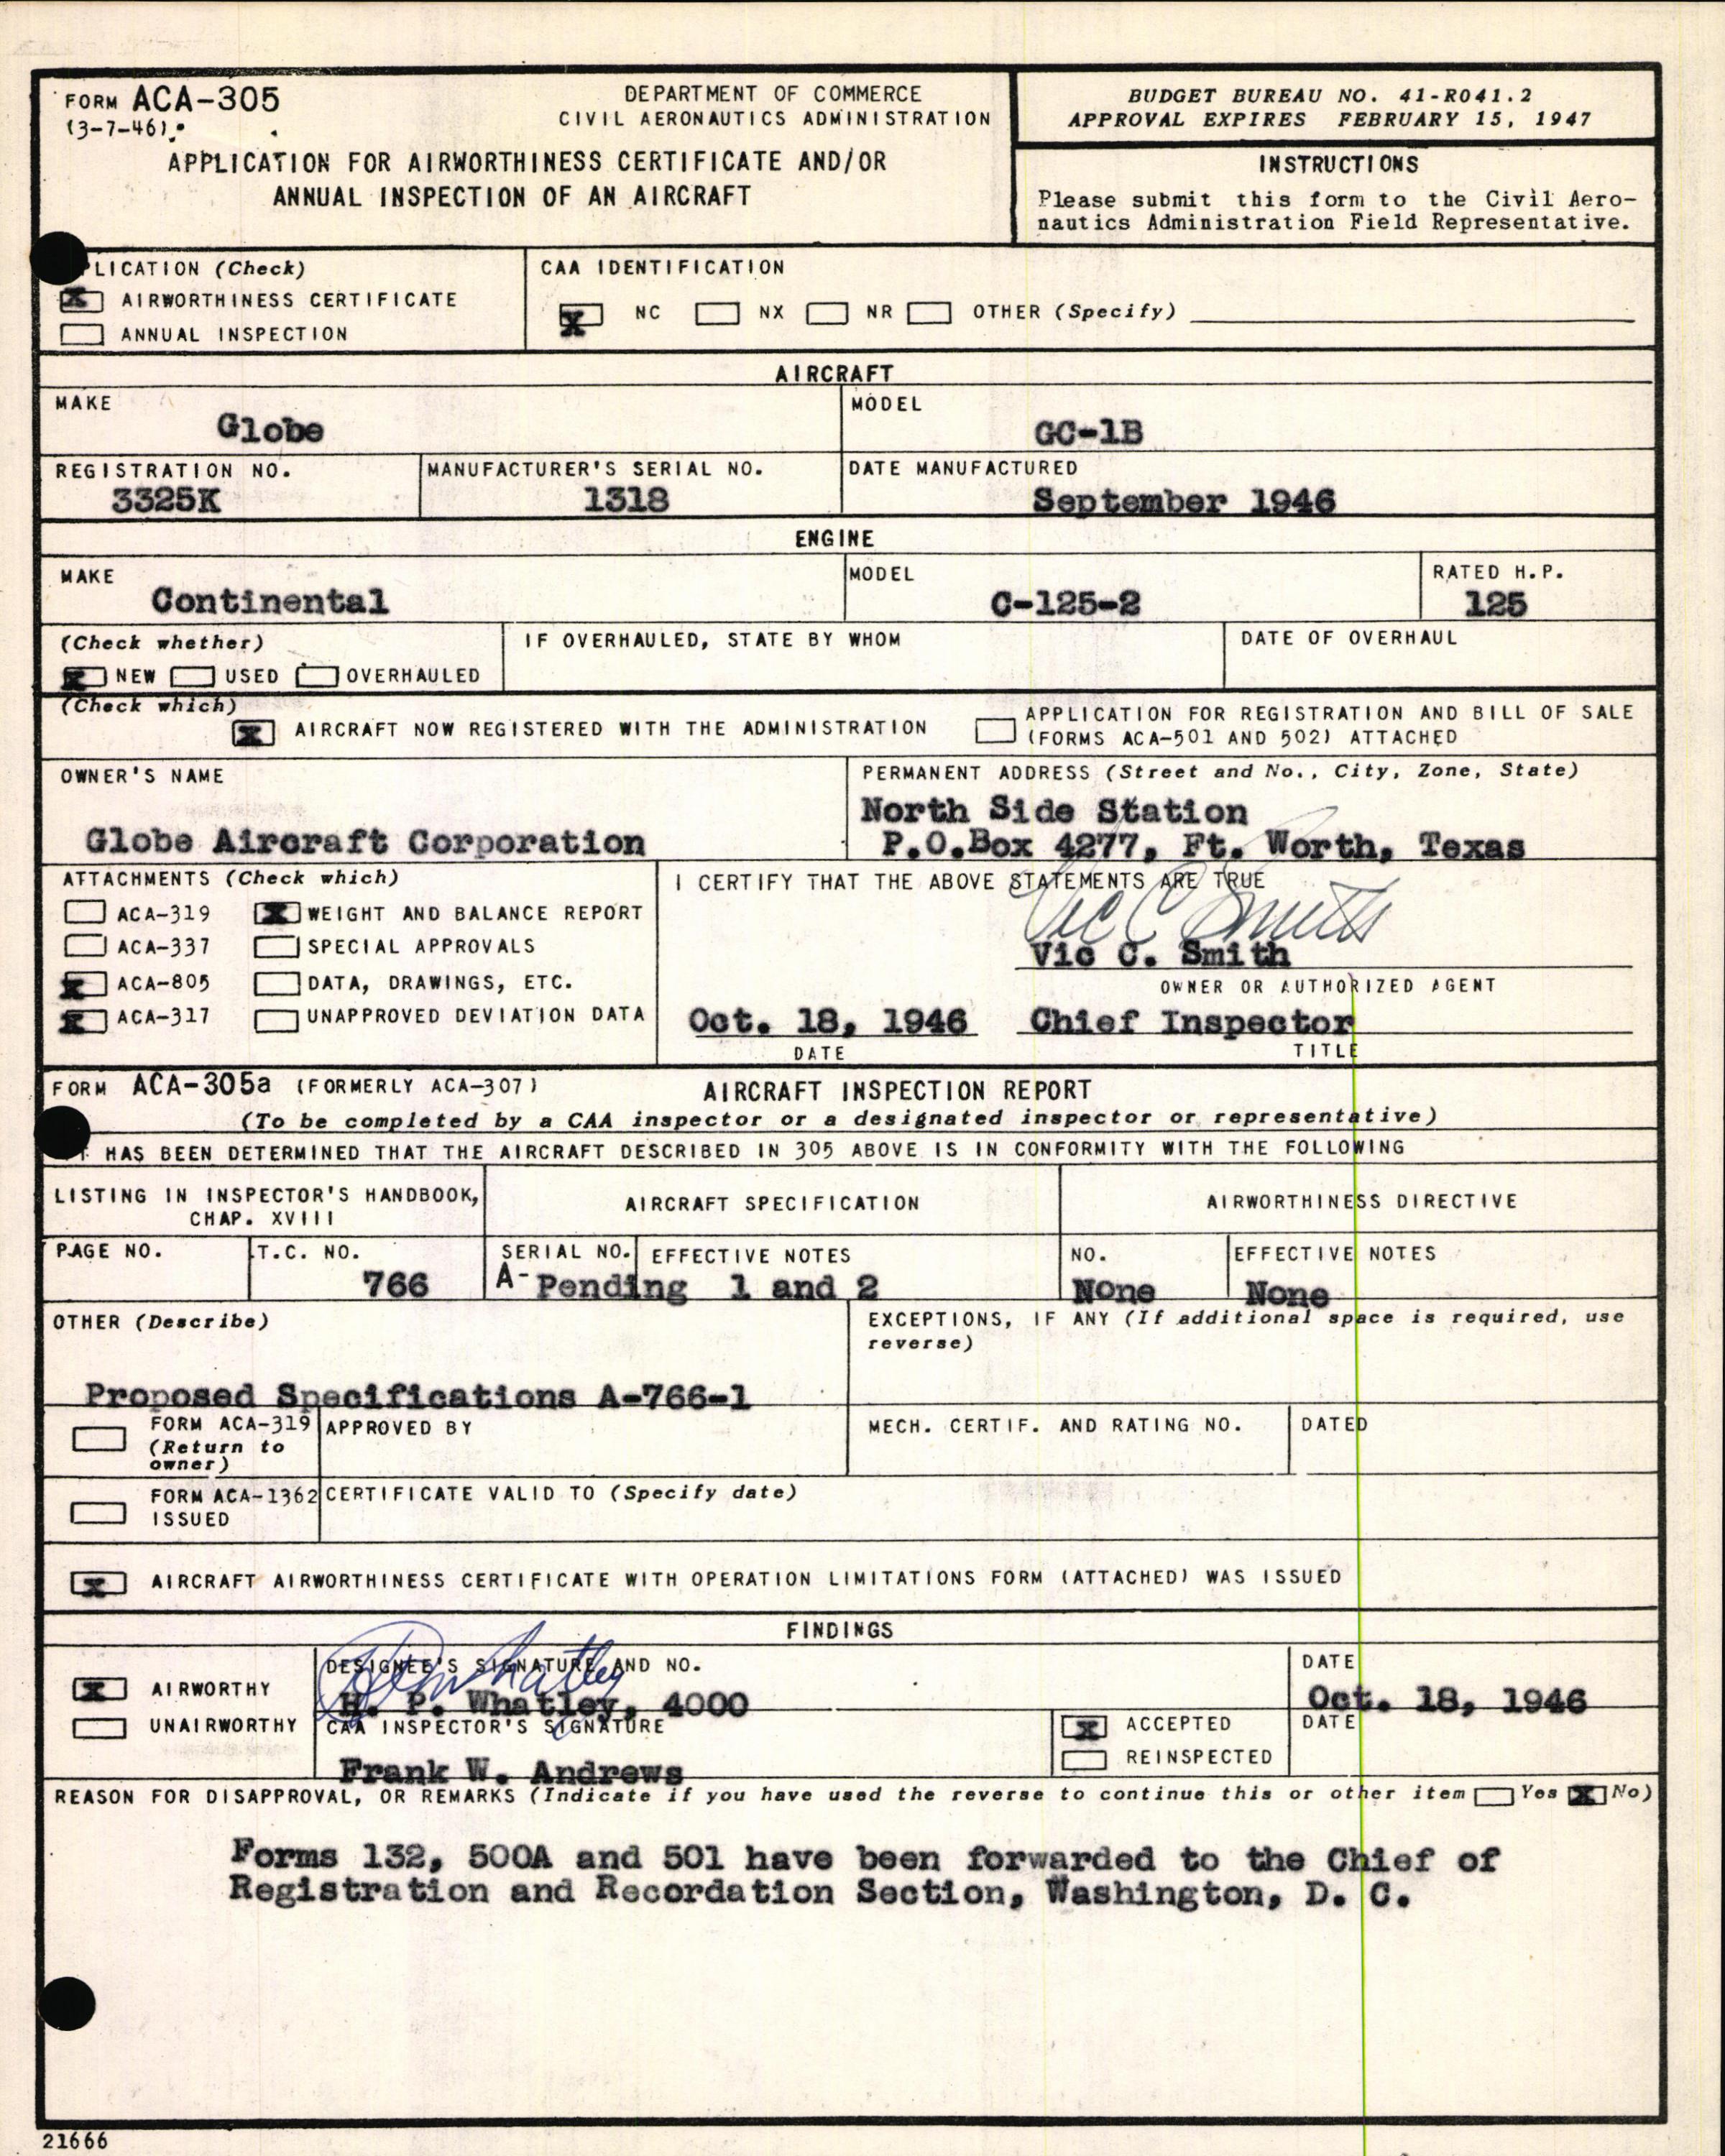 FORM ACA-305
(3-7-46)
DEPARTMENT OF COMMERCE
CIVIL AERONAUTICS ADMINISTRATION
APPLICATION FOR AIRWORTHINESS CERTIFICATE AND/OR
ANNUAL INSPECTION OF AN AIRCRAFT
BUDGET BUREAU NO. 41-R041.2
APPROVAL EXPIRES FEBRUARY 15, 1947
INSTRUCTIONS
Please submit this form to the Civil Aero-
nautics Administration Field Representative.
PLICATION (Check)
X AIRWORTHINESS CERTIFICATE
ANNUAL INSPECTION
CAA IDENTIFICATION
X NC NX NR OTHER (Specify)
AIRCRAFT
MAKE
Globe
MODEL
GC-1B
REGISTRATION NO.
3325K
MANUFACTURER'S SERIAL NO.
1318
DATE MANUFACTURED
September 1946
ENGINE
MAKE
Continental
MODEL
C-125-2
RATED H.P.
125
(Check whether)
X NEW USED OVERHAULED
IF OVERHAULED, STATE BY WHOM
DATE OF OVERHAUL
(Check which)
X AIRCRAFT NOW REGISTERED WITH THE ADMINISTRATION
APPLICATION FOR REGISTRATION AND BILL OF SALE
(FORMS ACA-501 AND 502) ATTACHED
OWNER'S NAME
Globe Aircraft Corporation
PERMANENT ADDRESS (Street and No., City, Zone, State)
North Side Station
P.O.Box 4277, Ft. Worth, Texas
ATTACHMENTS (Check which)
ACA-319 X WEIGHT AND BALANCE REPORT
ACA-337 SPECIAL APPROVALS
X ACA-805 DATA, DRAWINGS, ETC.
X ACA-317 UNAPPROVED DEVIATION DATA
I CERTIFY THAT THE ABOVE STATEMENTS ARE TRUE
Vic C Smith
Vic C. Smith
OWNER OR AUTHORIZED AGENT
Oct. 18, 1946 Chief Inspector
DATE TITLE
FORM ACA-305a (FORMERLY ACA-307) AIRCRAFT INSPECTION REPORT
(To be completed by a CAA inspector or a designated inspector or representative)
T HAS BEEN DETERMINED THAT THE AIRCRAFT DESCRIBED IN 305 ABOVE IS IN CONFORMITY WITH THE FOLLOWING
LISTING IN INSPECTOR'S HANDBOOK,
CHAP. XVIII
AIRCRAFT SPECIFICATION
AIRWORTHINESS DIRECTIVE
PAGE NO.
T.C. NO.
766
SERIAL NO.
A- Pending
EFFECTIVE NOTES
1 and 2
NO.
None
EFFECTIVE NOTES
None
OTHER (Describe)
Proposed Specifications A-766-1
EXCEPTIONS, IF ANY (If additional space is required, use
reverse)
FORM ACA-319
(Return to
owner)
APPROVED BY
MECH. CERTIF. AND RATING NO.
DATED
FORM ACA-1362
ISSUED
CERTIFICATE VALID TO (Specify date)
X AIRCRAFT AIRWORTHINESS CERTIFICATE WITH OPERATION LIMITATIONS FORM (ATTACHED) WAS ISSUED
FINDINGS
X AIRWORTHY
UNAIRWORTHY
DESIGNEE'S SIGNATURE AND NO.
HPWhatley
H. P. Whatley, 4000
DATE
Oct. 18, 1946
CAA INSPECTOR'S SIGNATURE
Frank W. Andrews
X ACCEPTED
REINSPECTED
DATE
REASON FOR DISAPPROVAL, OR REMARKS (Indicate if you have used the reverse to continue this or other item Yes X No)
Forms 132, 500A and 501 have been forwarded to the Chief of
Registration and Recordation Section, Washington, D. C.
21666